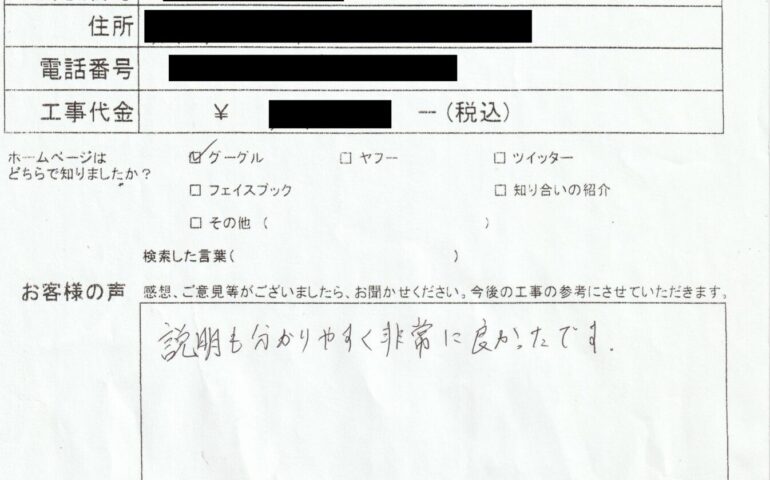 住所
電話番号
工事代金 ¥ ー(税込)
ホームページは
どちらで知りましたか?
☑ グーグル □ ヤフー □ ツイッター
□ フェイスブック □ 知り合いの紹介
□ その他 ( )
検索した言葉( )
お客様の声 感想、ご意見等がございましたら、お聞かせください。今後の工事の参考にさせていただきます。
説明も分かりやすく非常に良かったです.